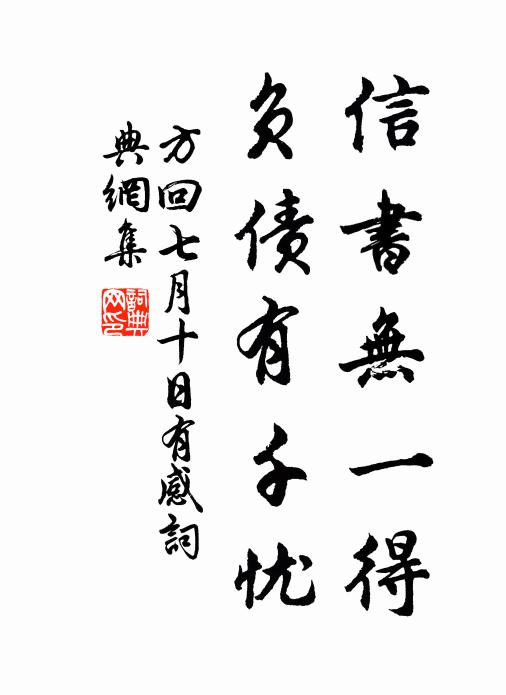 信書無一得
负债有千忧
方回七月十日有感詞
典網集
詞典網印